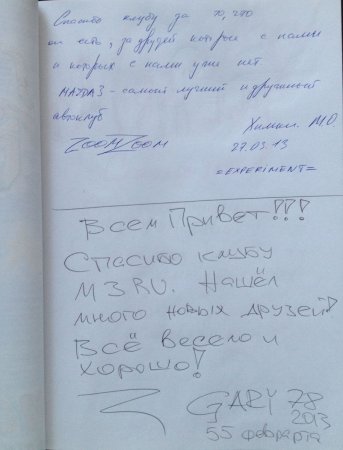 Спасибо клубу за то, что
он есть, за друзей которые с нами
и которых с нами уже нет.
MAZDA3 - самый лучший и дружный
автоклуб
ZOOM ZOOM
Химки. МО
27.03.13
=EXPERIMENT=
Всем Привет!!!
Спасибо клубу
M3RU. Нашёл
много новых друзей!
Всё весело и
хорошо!
GARY 78
2013
55 февраля